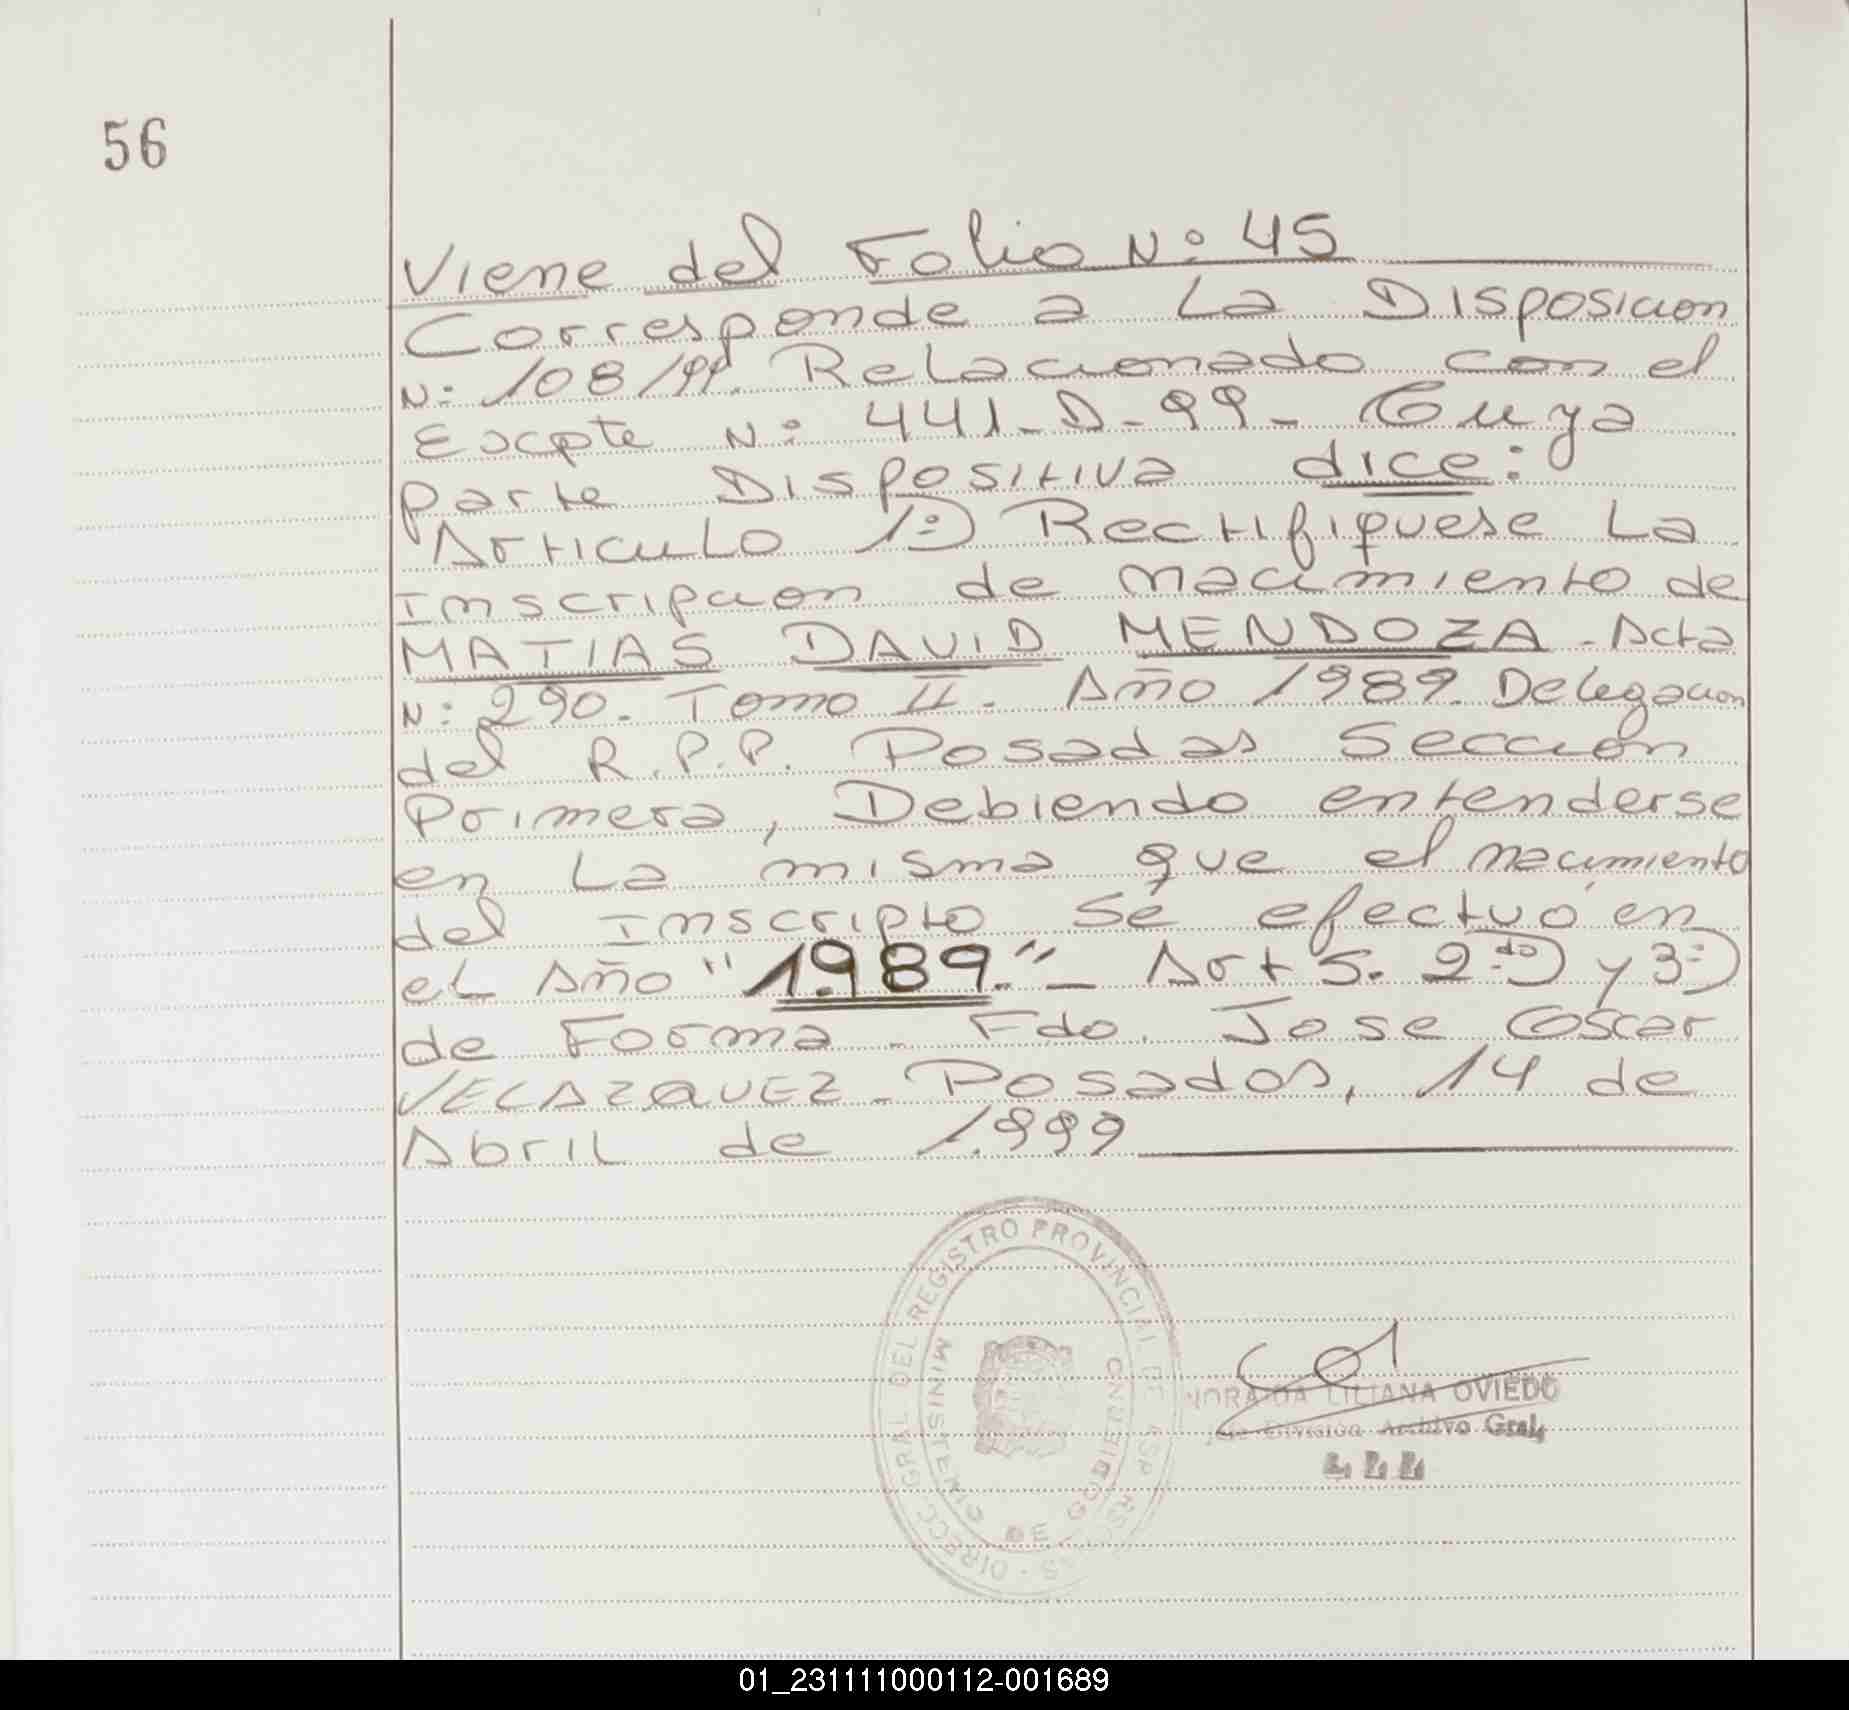 56
Viene del Folio N: 45
Corresponde a La Disposicion
N: 108/99. Relacionado con el
Excpte N: 441-D-99- Cuya
parte Dispositiva dice:
Articulo 1:) Rectifiquese La
Inscripcion de nacimiento de
MATIAS DAVID MENDOZA - Acta
N: 290. Tomo II. Año 1989. Delegacion
del R.P.P. Posadas Seccion
Primera, Debiendo entenderse
en La misma que el nacimiento
del Inscripto se efectuó en
el Año "1.989." - Art S. 2do) y 3:)
de Forma - Fdo. Jose Oscar
VELAZQUEZ - Posadas, 14 de
Abril de 1.999
DIRECC. GRAL. DEL REGISTRO PROVINCIAL DE
MINISTERIO DE GOBIERNO
LILIANA OVIEDO
División Archivo Gral.
01_231111000112-001689